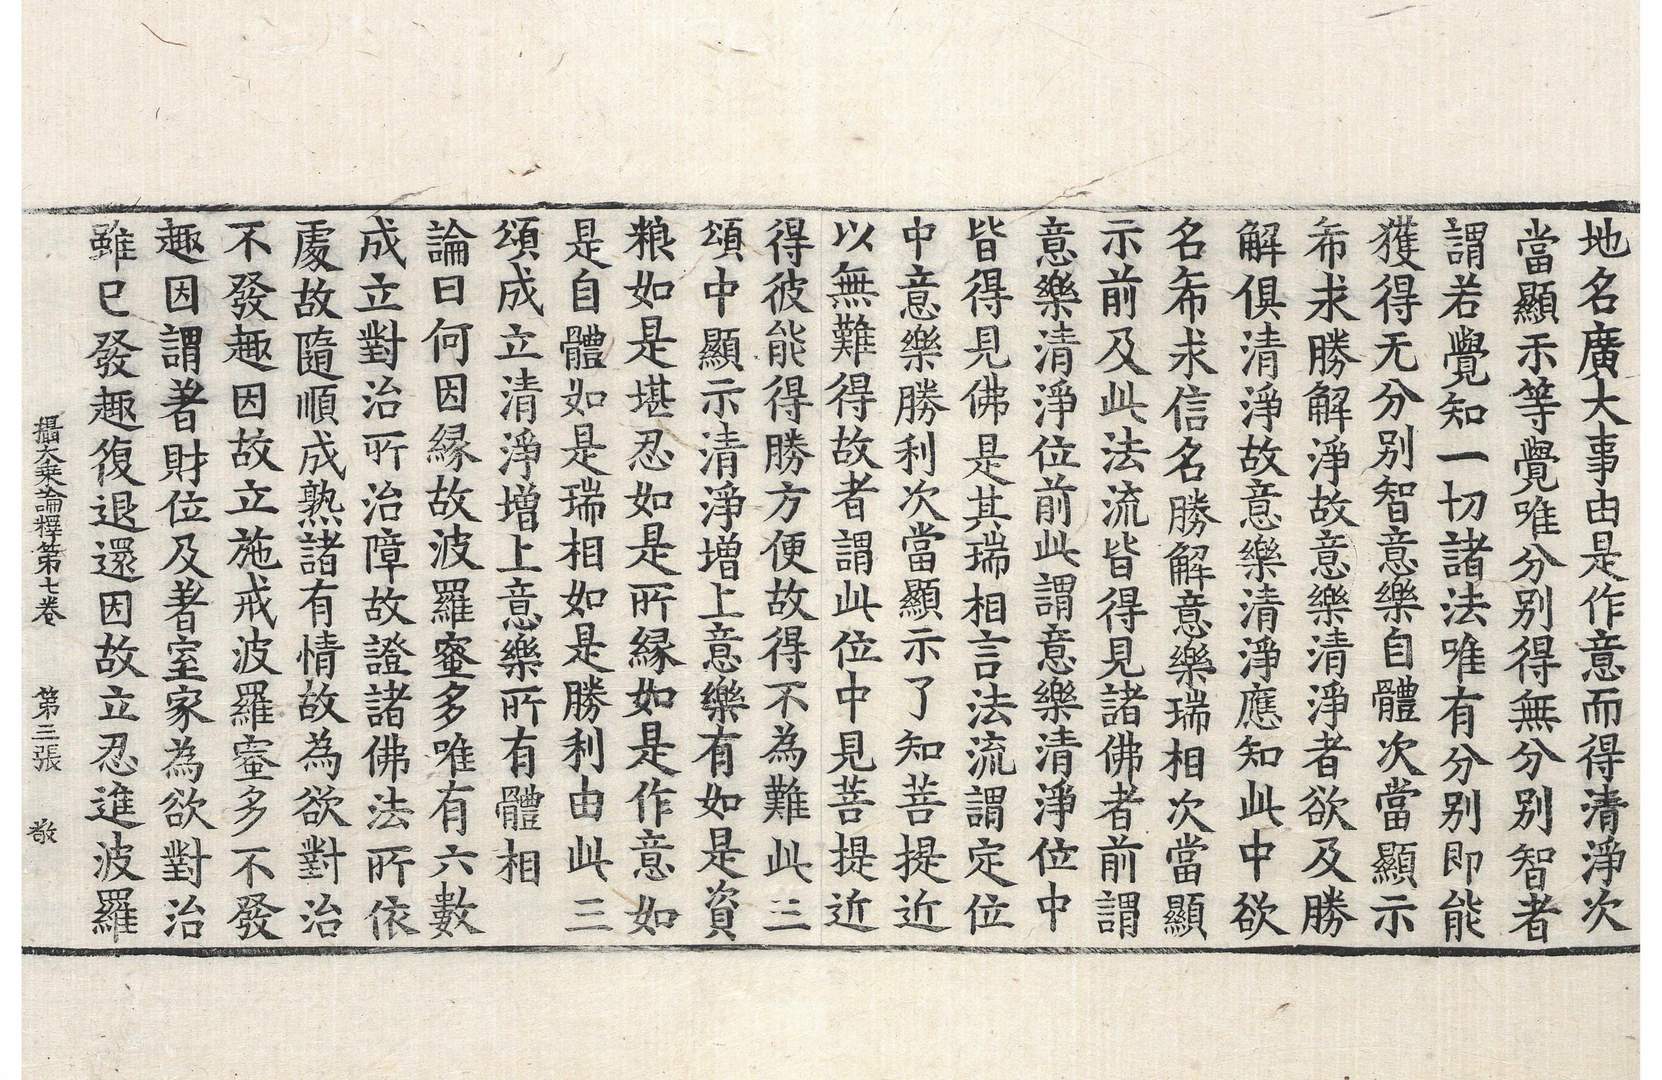 地名廣大事由是作意而得清淨次
當顯示等覺唯分別得無分別智者
謂若覺知一切諸法唯有分別即能
獲得无分別智意樂自體次當顯示
希求勝解淨故意樂清淨者欲及勝
解俱清淨故意樂清淨應知此中欲
名希求信名勝解意樂瑞相次當顯
示前及此法流皆得見諸佛者前謂
意樂清淨位前此謂意樂清淨位中
皆得見佛是其瑞相言法流謂定位
中意樂勝利次當顯示了知菩提近
以無難得故者謂此位中見菩提近
得彼能得勝方便故得不為難此三
頌中顯示清淨增上意樂有如是資
粮如是堪忍如是所緣如是作意如
是自體如是瑞相如是勝利由此三
頌成立清淨增上意樂所有體相
論曰何因緣故波羅蜜多唯有六數
成立對治所治障故證諸佛法所依
處故隨順成熟諸有情故為欲對治
不發趣因故立施戒波羅蜜多不發
趣因謂著財位及著室家為欲對治
雖已發趣復退還因故立忍進波羅
攝大乘論釋第七卷 第三張 敬